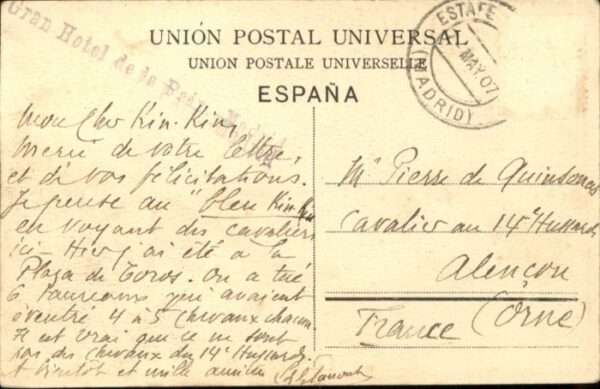 Gran Hotel de la Paix Madrid
UNIÓN POSTAL UNIVERSAL
UNION POSTALE UNIVERSELLE
ESPAÑA
ESTAFE
MAY 07
(MADRID)
Mon Cher Kin-Kin,
Merci de votre lettre,
et de vos félicitations.
Je pense au "bleu Kin-Kin
en voyant des cavaliers
ici - Hier j'ai été à la
Plaza de Toros. On a tué
6 taureaux qui avaient
éventré 4 à 5 chevaux chacun.
Il est vrai que ce ne sont
pas des chevaux du 14e Hussards.
A bientôt et mille amitiés
Mr Pierre de Quinsonas
Cavalier au 14e Hussards
Alençon
(Orne)
France